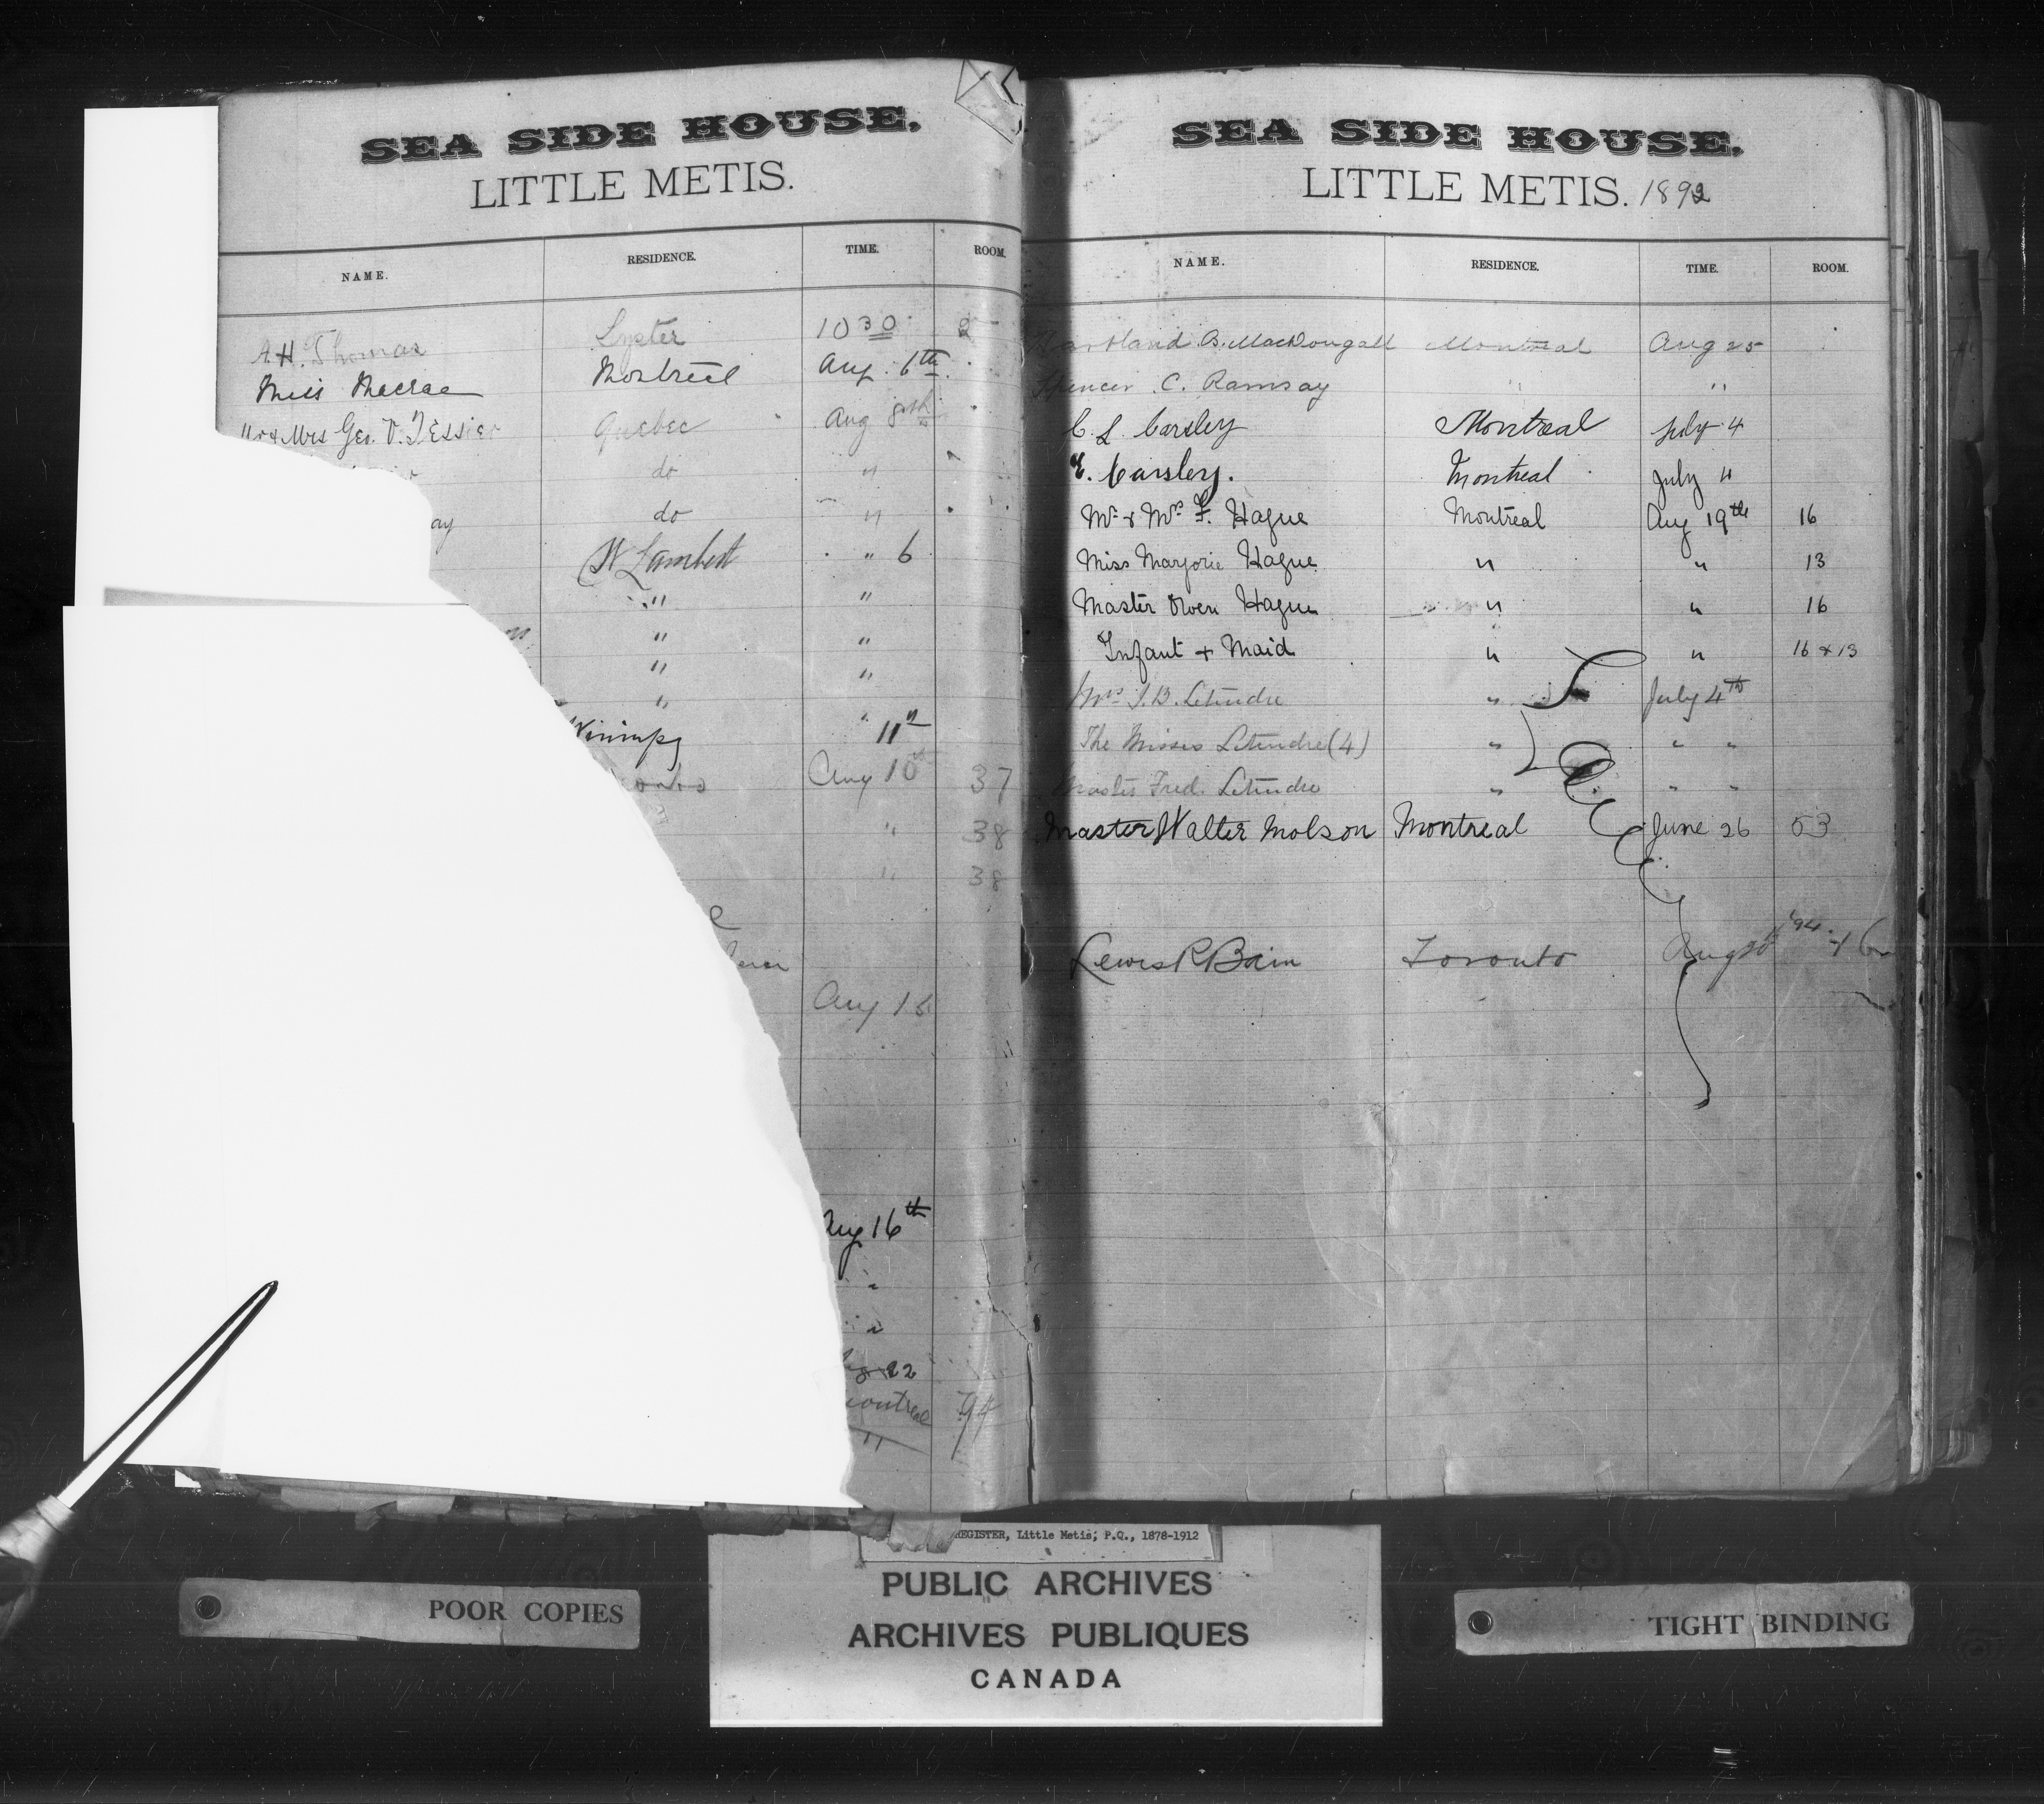 SEA SIDE HOUSE,
LITTLE METIS.
NAME. RESIDENCE. TIME. ROOM.
A. H. Thomas Lyster 10 30 2
Miss Macrae Montreal Aug. 6th
Mr & Mrs Geo. V. Tessier Quebec Aug 8th
do "
ay do "
St Lambert " 6
" "
" "
" "
" "
Winnipg " 11th
Aug 10th 37
" 38
" 38
Aug 16
Aug 16th
"
"
22
94
"
SEA SIDE HOUSE.
LITTLE METIS. 1892
NAME. RESIDENCE. TIME. ROOM.
Hartland B. MacDougall Montreal Aug 25
Spencer C. Ramsay " "
C. L. Carsley Montreal July 4
E. Carsley. Montreal July 4
Mr & Mrs F. Hague Montreal Aug 19th 16
Miss Marjorie Hague " " 13
Master Owen Hague " " 16
Infant & Maid " " 16 & 13
Mrs J. B. Letendre " July 4th
The Misses Letendre (4) " " "
Master Fred. Letendre " " "
Master Walter Molson Montreal June 26 53
Lewis R Bain Toronto Aug 20th '94.
REGISTER, Little Metis, P.Q., 1878-1912
PUBLIC ARCHIVES
ARCHIVES PUBLIQUES
CANADA
POOR COPIES
TIGHT BINDING